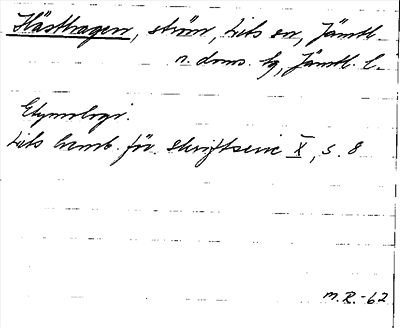 Hästhagen, ström, Lits sn, Jämtl.
n. doms. hg, Jämtl. l.
Etymologi.
Lits hemb. för. skriftserie X, s. 8
M.R.-62